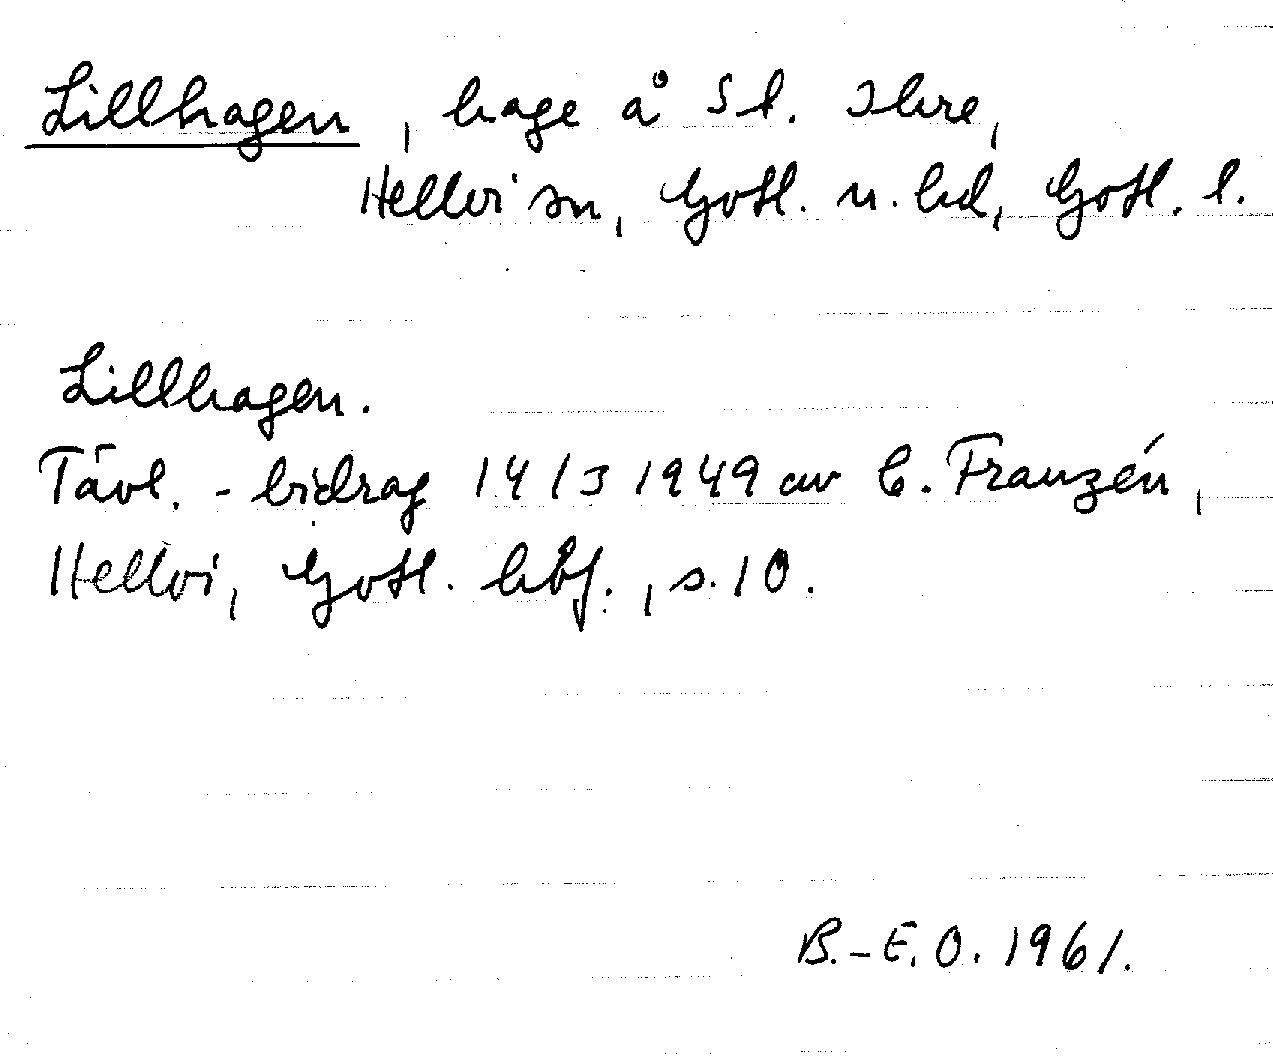 Lillhagen, hage å St. Ihre,
Hellvi sn, Gotl. n. hd, Gotl. l.
Lillhagen.
Tävl. - bidrag 14/3 1949 av C. Franzén,
Hellvi, Gotl. hbf., s. 10.
B.-E.O. 1961.